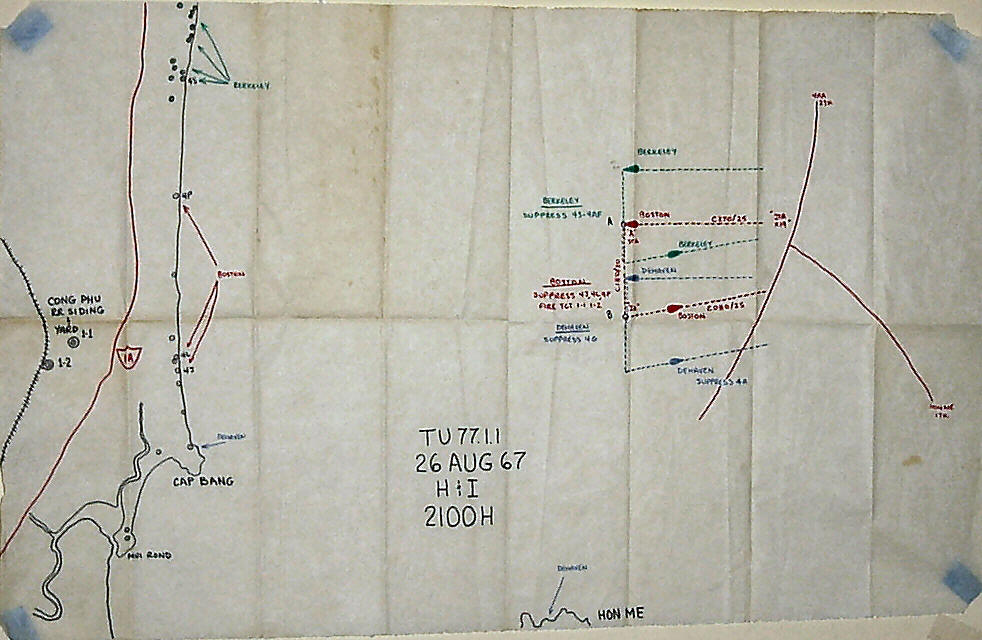 BERKELEY
43
4P
BOSTON
CONG PHU
RR SIDING
YARD
1-1
1-2
1A
4J
DEHAVEN
CAP BANG
NUI ROND
TU 77.1.1
26 AUG 67
H & I
2100H
DEHAVEN
HON ME
BERKELEY
BERKELEY
SUPPRESS 43-4AF
A
BOSTON
C270/25
BERKELEY
DEHAVEN
BOSTON
FIRE TGT 1-1 1-2
B
BOSTON
C080/25
DEHAVEN
SUPPRESS 4G
DEHAVEN
SUPPRESS 4A
HON ME